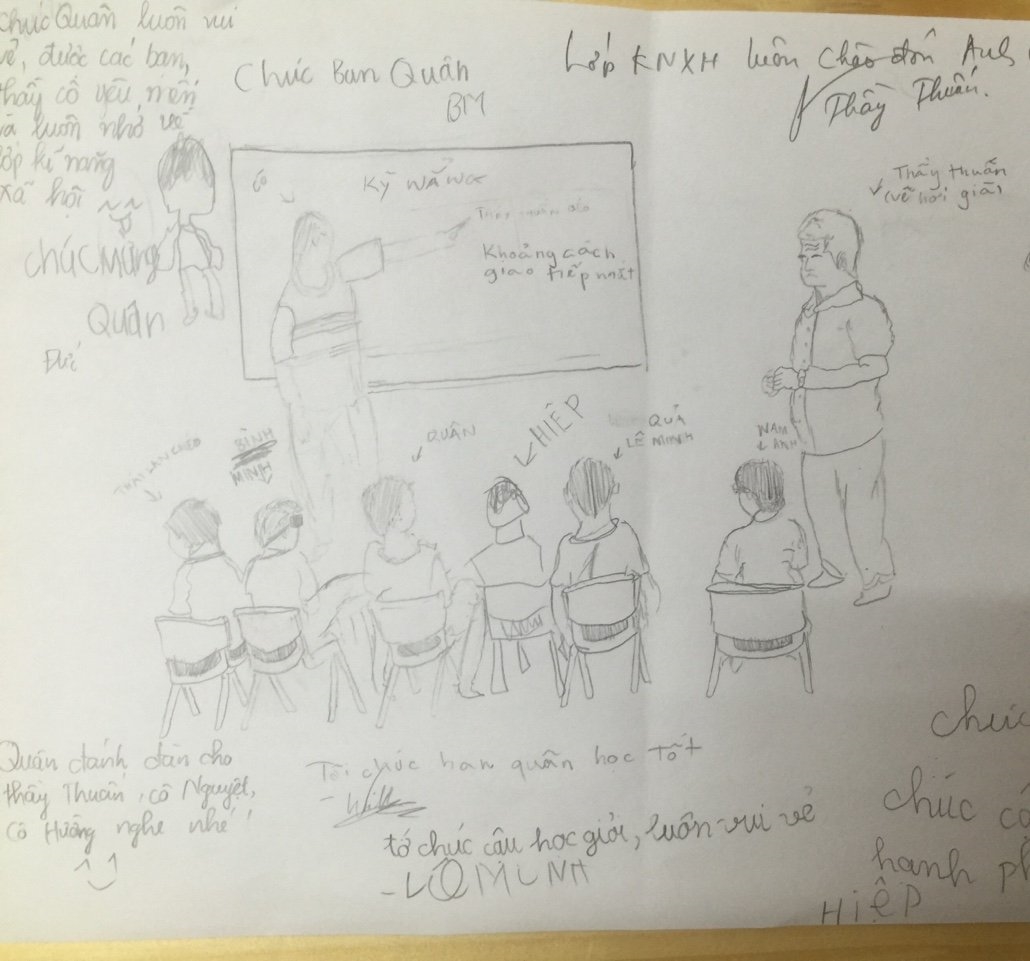 Chúc Quân luôn vui
vẻ, được các bạn,
thầy cô yêu mến
và luôn nhớ về
lớp kĩ năng
xã hội
Chúc Bạn Quân
BM
Lớp KNXH luôn chào đón Anh
Thầy Thuấn.
Chúc Mừng
Quân
Đức
KỸ NĂNG
Khoảng cách
giao tiếp nhất
Thầy thuấn
(vẽ hơi già)
BÌNH
MINH
QUÂN
HIỆP
QUẢ
LÊ MINH
NAM
ANH
Quân đánh đàn cho
thầy Thuấn, cô Nguyệt,
cô Hường nghe nhé
Tôi chúc bạn quân học tốt
tớ chúc cậu học giỏi, luôn vui vẻ
chúc
hạnh
HIỆP